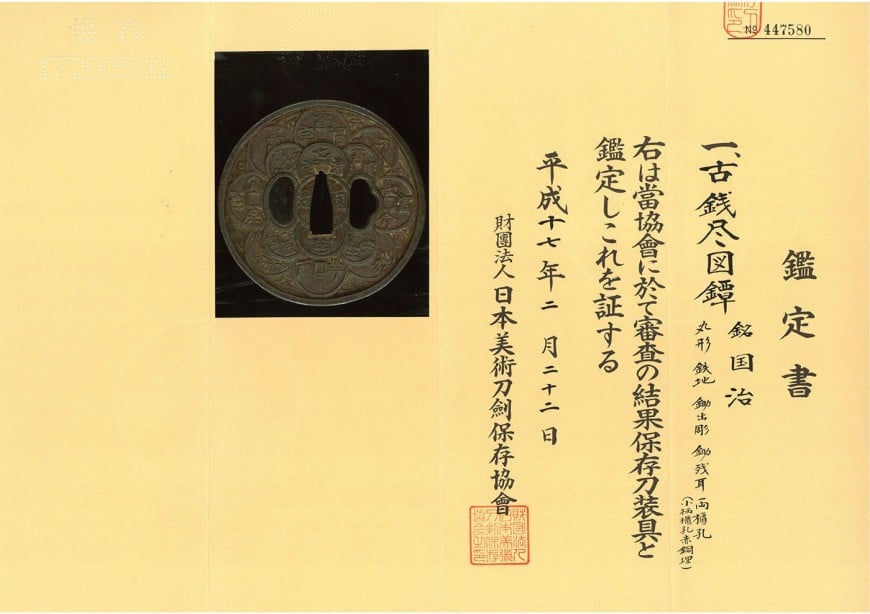 № 447580
鑑定書
一、古銭尽図鐔 銘 国治
丸形 鉄地 鋤出彫 鋤残耳 両櫃孔
(小柄櫃孔赤銅埋)
右は當協會に於て審査の結果保存刀装具と
鑑定しこれを証する
平成十七年二月二十二日
財團法人 日本美術刀劍保存協會
保存
17200502